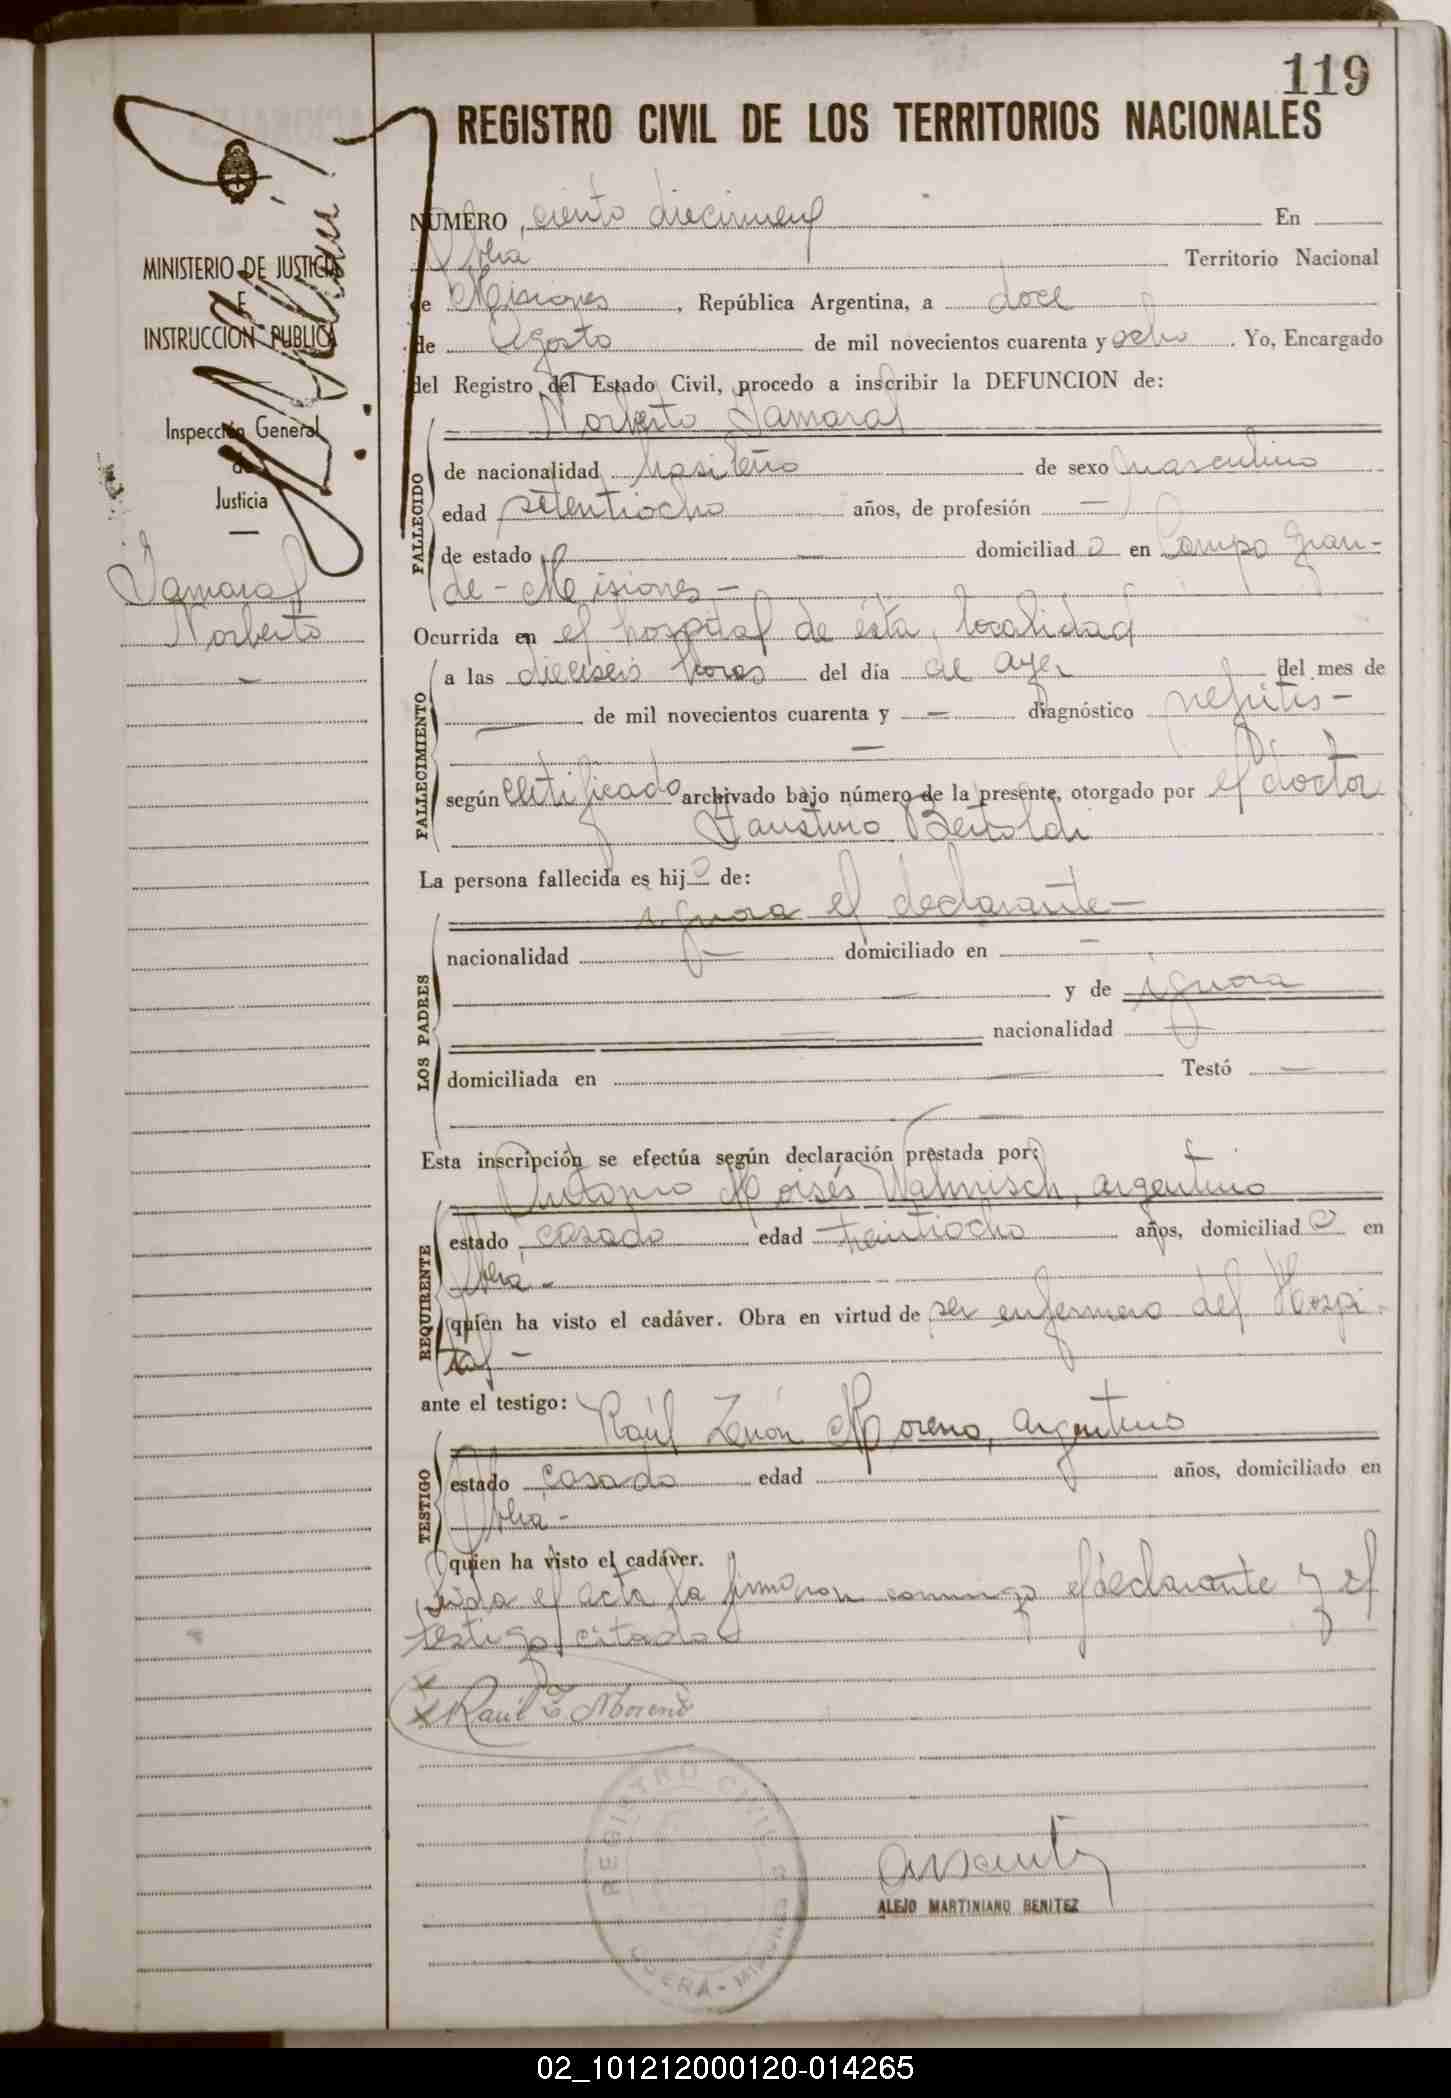 119
REGISTRO CIVIL DE LOS TERRITORIOS NACIONALES
MINISTERIO DE JUSTICIA
E
INSTRUCCION PUBLICA
Inspección General
de
Justicia
Tamaral
Norberto
NUMERO ciento diecinueve En
Oberá Territorio Nacional
de Misiones, República Argentina, a doce
de Agosto de mil novecientos cuarenta y ocho. Yo, Encargado
del Registro del Estado Civil, procedo a inscribir la DEFUNCION de:
Norberto Tamaral
FALLECIDO
de nacionalidad brasileño de sexo masculino
edad setentiocho años, de profesión —
de estado — domiciliado en Campo Gran-
de - Misiones -
Ocurrida en el hospital de ésta localidad
FALLECIMIENTO
a las dieciseis horas del día de ayer del mes de
— de mil novecientos cuarenta y — diagnóstico nefritis -
—
según certificado archivado bajo número de la presente, otorgado por el doctor
Faustino Bertoldi
La persona fallecida es hijo de:
LOS PADRES
ignora el declarante -
nacionalidad — domiciliado en —
— y de ignora
— nacionalidad —
domiciliada en — Testó —
—
Esta inscripción se efectúa según declaración prestada por:
REQUIRENTE
Antonio Moisés Walmisch, argentino
estado casado edad treintiocho años, domiciliado en
Oberá -
quien ha visto el cadáver. Obra en virtud de ser enfermero del Hospi-
tal -
ante el testigo:
TESTIGO
Raúl Zenón Moreno, argentino
estado casado edad años, domiciliado en
Oberá -
quien ha visto el cadáver.
Leída el acta la firmaron conmigo el declarante y el
testigo citados
Raúl Z Moreno
REGISTRO CIVIL
OBERA - MISIONES
ALEJO MARTINIANO BENITEZ
02_101212000120-014265